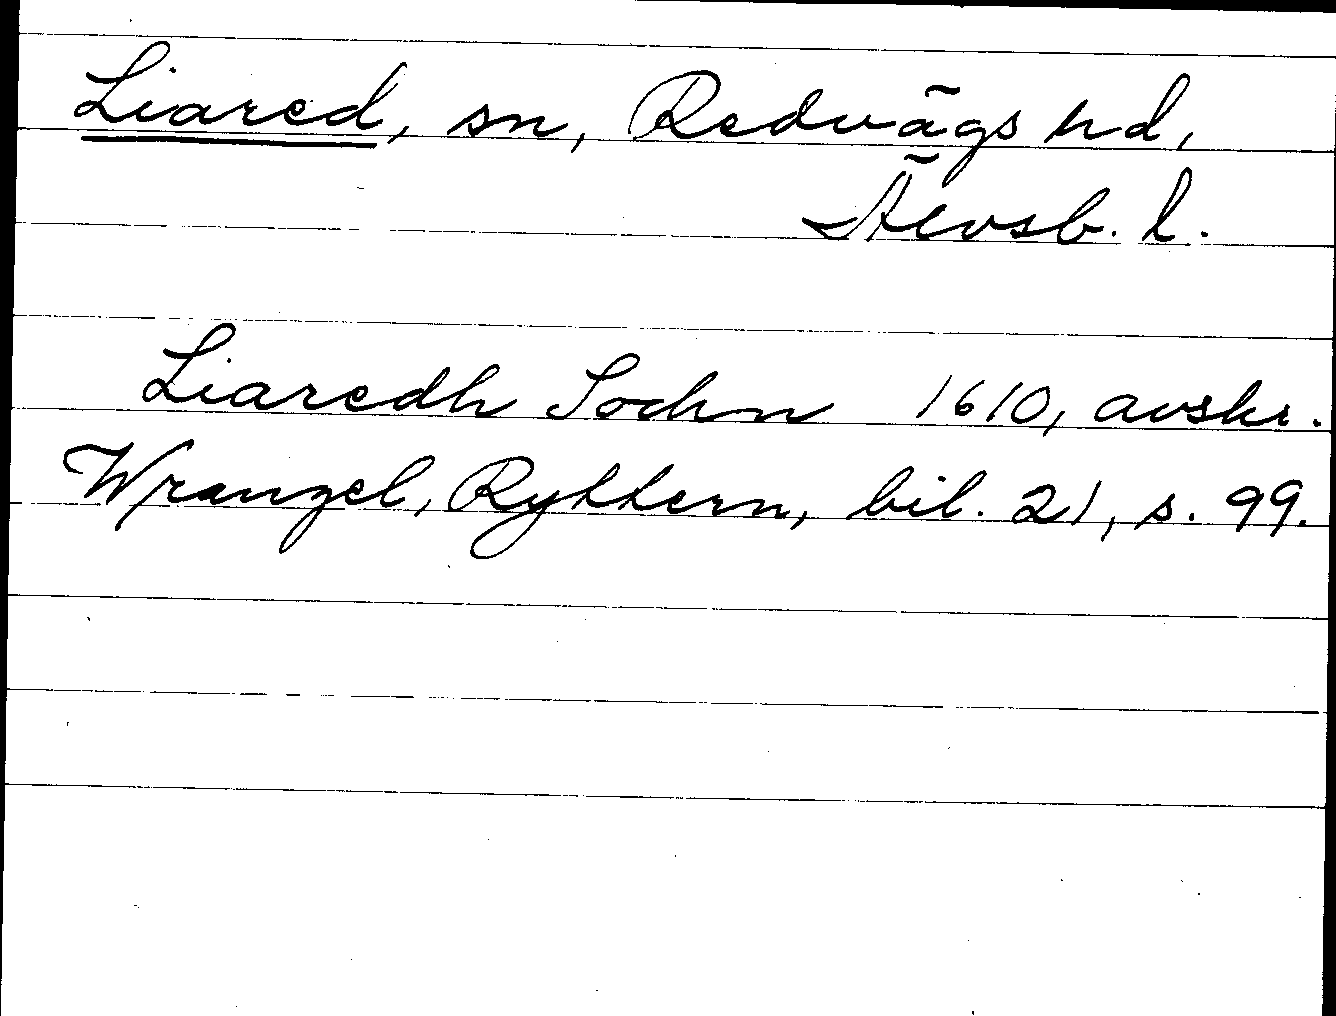 Liared, sn, Redvägs hd,
Älvsb. l.
Liaredh Sochn 1610, avskr.
Wrangel, Ryttern, bil. 21, s. 99.